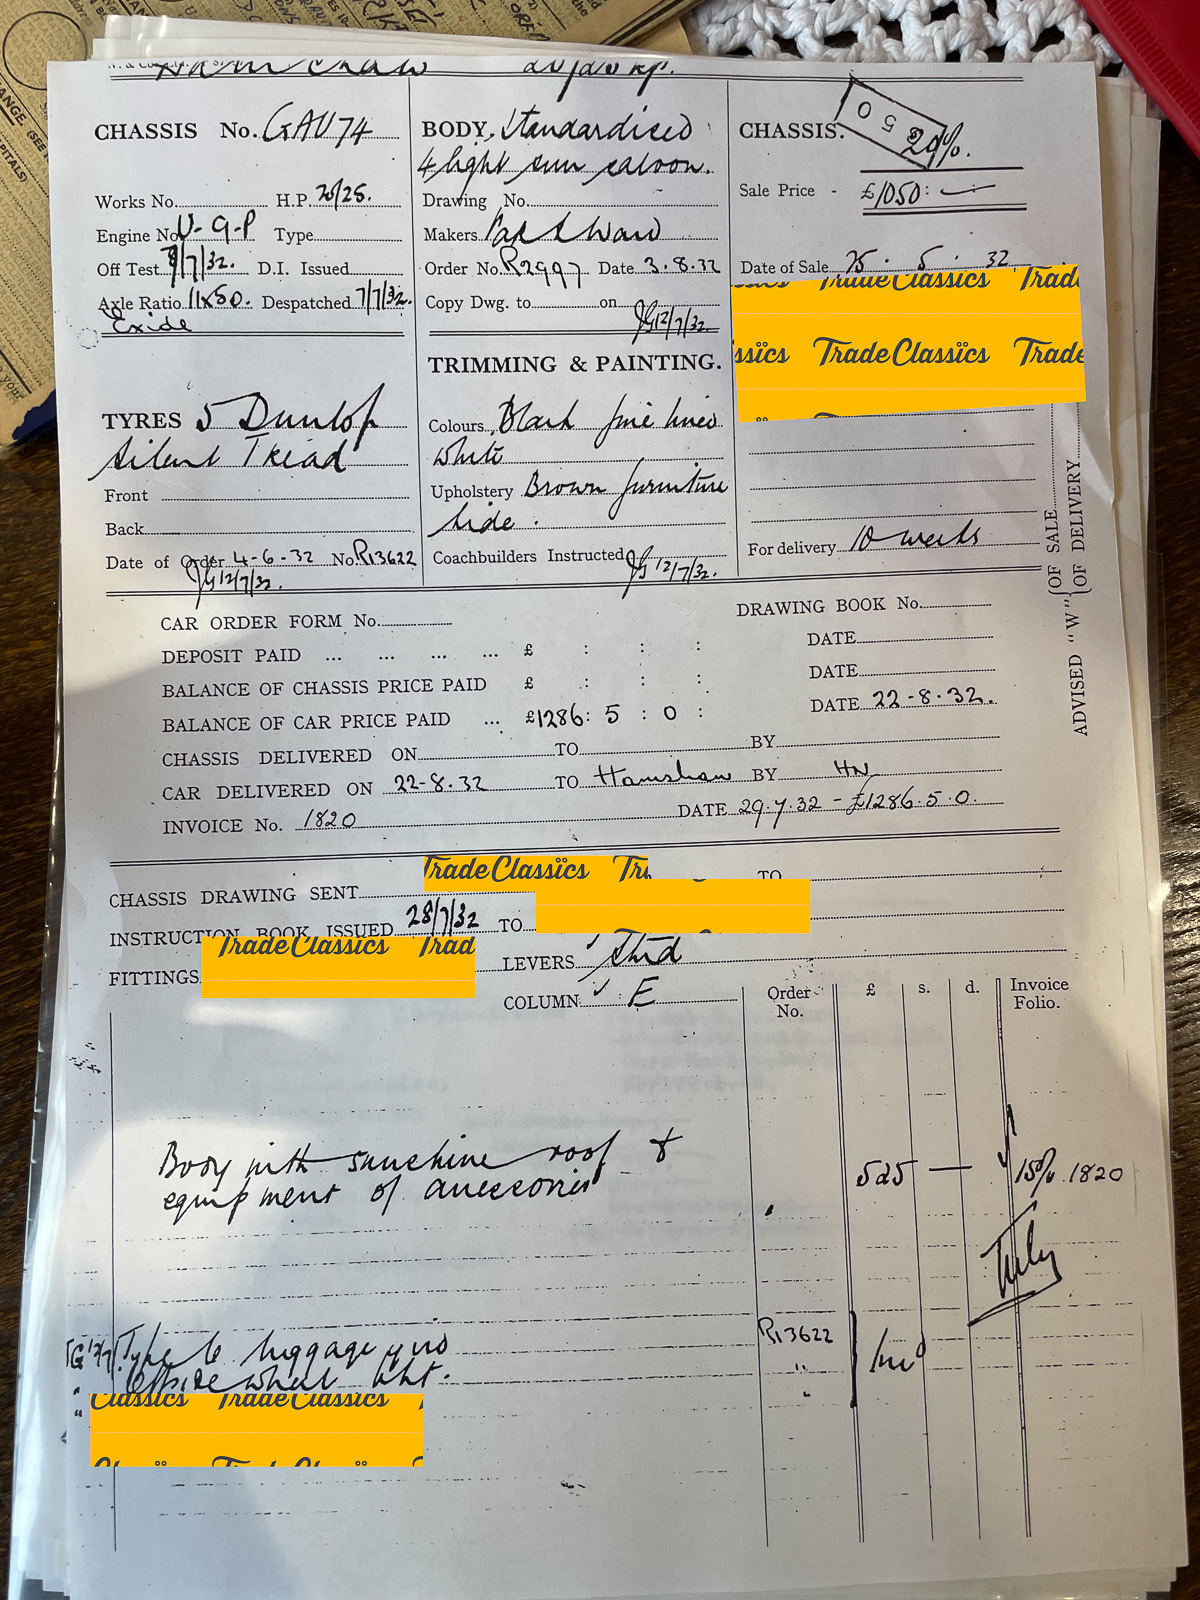 Hamshaw 20/25 HP.
CHASSIS No. GAU74
Works No. H.P. 20/25.
Engine No. U-9-P Type
Off Test 7/32. D.I. Issued
Axle Ratio 11x50. Despatched 7/7/32.
Exide
TYRES 5 Dunlop
Silent Triad
Front
Back
Date of Order 4-6-32 No. R13622
JG 12/7/32.
BODY. Standardised
4 light sun saloon.
Drawing No.
Makers Park Ward
Order No. R2997 Date 3.8.32
Copy Dwg. to on
JG 12/7/32.
TRIMMING & PAINTING.
Colours Black fine lined
white
Upholstery Brown furniture
hide.
Coachbuilders Instructed JG 12/7/32.
CHASSIS.
050
20%.
Sale Price - £1050:—
Date of Sale 25. 5. 32
TradeClassïcs Trade
ssïcs TradeClassïcs Trade
For delivery 10 weeks
ADVISED "W" {OF SALE
{OF DELIVERY
CAR ORDER FORM No.
DRAWING BOOK No.
DEPOSIT PAID ... ... ... ... £ : : :
DATE
BALANCE OF CHASSIS PRICE PAID £ : : :
DATE
BALANCE OF CAR PRICE PAID ... £1286: 5 : 0 :
DATE 22-8-32.
CHASSIS DELIVERED ON TO BY
CAR DELIVERED ON 22-8-32 TO Hamshaw BY HN
INVOICE No. 1820 DATE 29.7.32 - £1286.5.0.
CHASSIS DRAWING SENT TradeClassïcs TO
INSTRUCTION BOOK ISSUED 28/7/32 TO
FITTINGS TradeClassïcs Trad
LEVERS Std
COLUMN E
Order No. £ s. d. Invoice Folio.
Body with sunshine roof &
equipment of accessories 525 — 15% 1820
JG 12/7 Type 6 luggage grid R13622
Offside wheel " Incd
" "
Classïcs TradeClassïcs